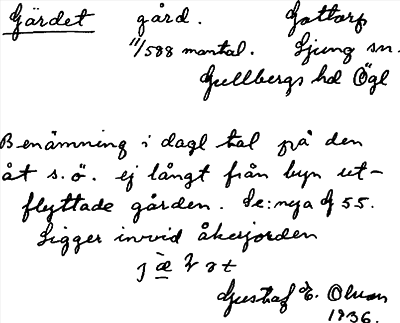 Gärdet gård. Gottorp
11/588 mantal. Ljung sn.
Gullbergs hd Ögl
Benämning i dagl tal på den
åt s.ö. ej långt från byn ut-
flyttade gården. Se: nya G 55.
Ligger invid åkerjorden
j æ̀ ɀ ə t
Gustaf E. Olsson
1936.